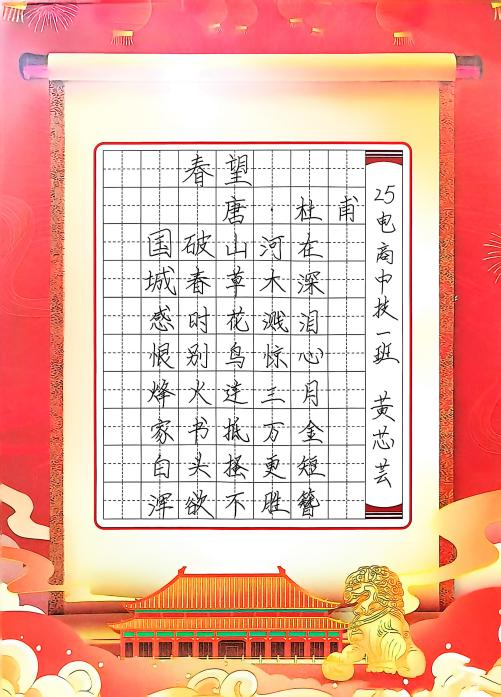 春望
唐·杜甫
国破山河在
城春草木深
感时花溅泪
恨别鸟惊心
烽火连三月
家书抵万金
白头搔更短
浑欲不胜簪
25电商中技一班 黄芯芸